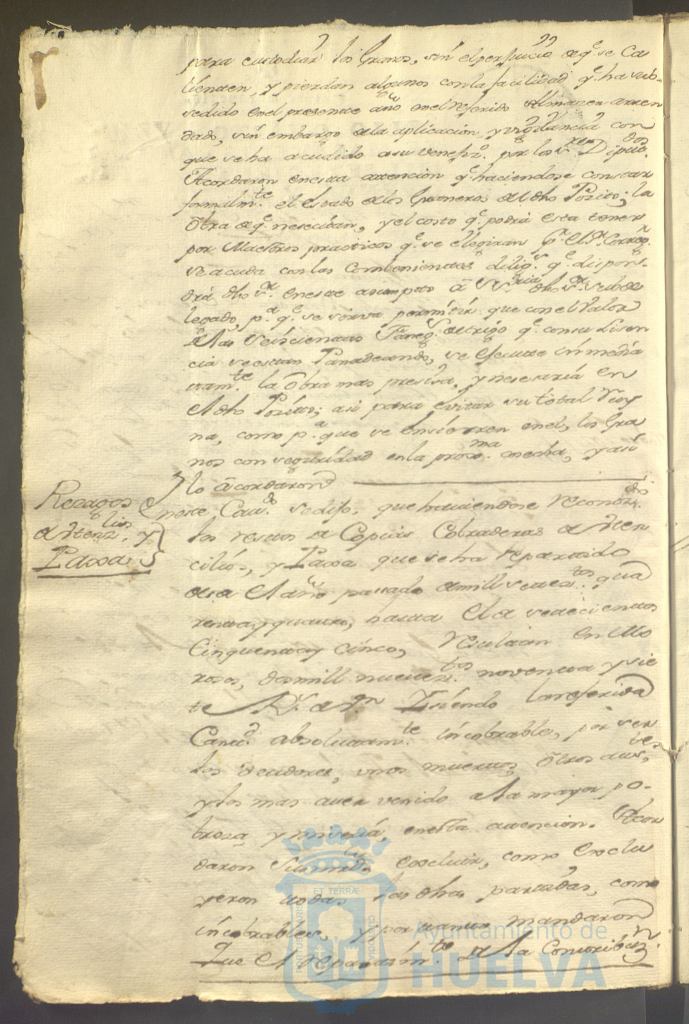 para custodiar los Granos, sin el perjuicio de q.e se Ca
lienten, y pierdan algunos con la facilidad q.e ha sub-
sedido en el presente año en el referido Almacen arren
dado, sin embargo de la aplicacion, y vigilancia con
que se ha acudido a su venefiz.o por los S.res Diput.dos
Acordaron en esta atencion q.e haciendose constar
formalm.te el estado de los Graneros de dho Posito; la
Obra de q.e nesecitan, y el costo q.e podrá esta tener
por Maestros practicos q.e se elegiran
se acuda con las Combenientes dilig.s q.e dispon-
drá dho S.r en este asumpto á dho S.r Subde
legado, p.a q.e se sirva permitir que con el Valor
de las Seiscientas Faneg.s de trigo q.e con su lisen
cia se estan Panadeando, se execute inmedia
tam.te la Obra mas presisa, y nesesaria en
el dho Posito; asi para evitar su total Ruy
na, como p.a que se ensierren en el, los Gra
nos con seguridad en la prox.ma cosecha, y asi
lo acordaron
Rezagos
de Utensilios y
Paxa
En este Cav.do se dijo, que haviendose reconoz.do
los restos de Copias Cobraderas de Uten
cilios, y Paxa que se ha repartido
desde el año pasado de mill setez.tos qua
renta y quatro, hasta el de setecientos
Cinquenta y Cinco, resultan en
dos mill nuevez.tos noventa y sie
te R.s de v.n y siendo la referida
Cant.d absolutam.te incobrable, por ser
los deudores, unos muertos, otros aus.tes
y los mas aver venido a la mayor po-
breza y miseria, en esta atencion Acor
daron excluir, como exclu
yeron todas las dhas partidas, como
incobrables, y por tanto mandaron
Que el repartim.to de la Contribuz.n
ET TERRAE
Ayuntamiento de
HUELVA